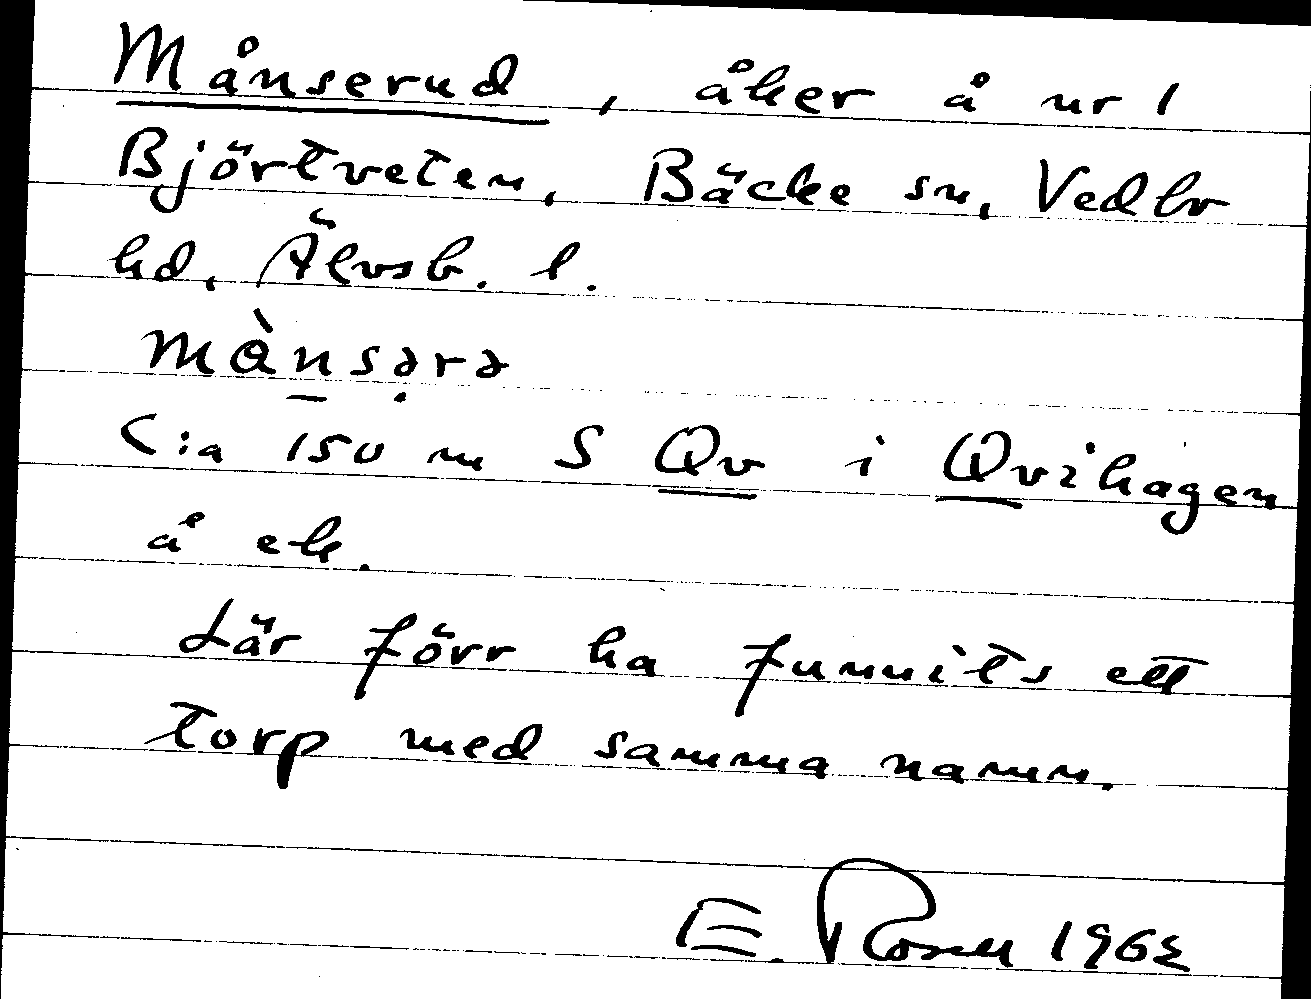 Månserud, åker å nr 1
Björtveten, Bäcke sn, Vedbo
hd, Älvsb. l.
mànsərə
C:a 150 m S Qv i Qvihagen
å ek.
Lär förr ha funnits ett
torp med samma namn.
E. Rosell 1962